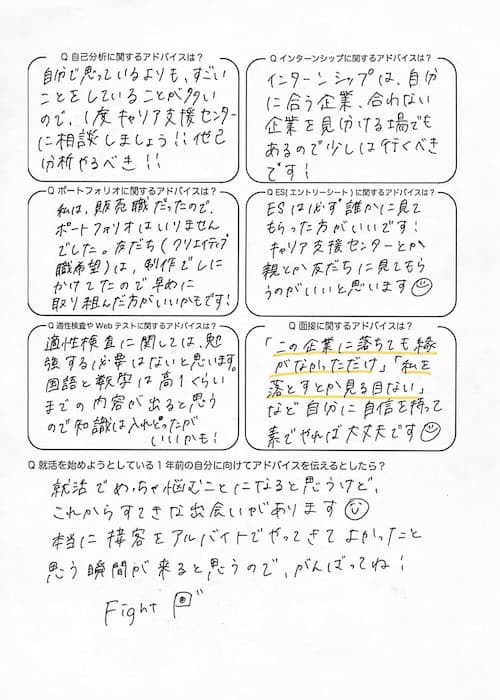 Q 自己分析に関するアドバイスは？
自分で思っているよりも、すごい
ことをしていることが多い
ので、1度キャリア支援センター
に相談しましょう！！他己
分析やるべき！！
Q インターンシップに関するアドバイスは？
インターンシップは、自分
に合う企業、合わない
企業を見分ける場でも
あるので少しは行くべき
です！
Q ポートフォリオに関するアドバイスは？
私は、販売職だったので、
ポートフォリオはいりません
でした。友だち(クリエイティブ
職希望)は、制作でしに
かけてたので早めに
取り組んだ方がいいかもです！
Q ES(エントリーシート)に関するアドバイスは？
ESは必ず誰かに見て
もらった方がいいです！
キャリア支援センターとか
親とか友だちに見てもら
うのがいいと思います
Q 適性検査やWebテストに関するアドバイスは？
適性検査に関しては、勉
強する必要はないと思います。
国語と数学は高1くらい
までの内容が出ると思う
ので知識は入れどったが
いいかも！
Q 面接に関するアドバイスは？
「この企業に落ちても縁
がなかっただけ」「私を
落とすとか見る目ない」
など自分に自信を持って
素でやれば大丈夫です
Q 就活を始めようとしている1年前の自分に向けてアドバイスを伝えるとしたら？
就活でめっちゃ悩むことになると思うけど、
これからすてきな出会いがあります
本当に接客をアルバイトでやってきてよかったこと
思う瞬間が来ると思うので、がんばってね！
Fight